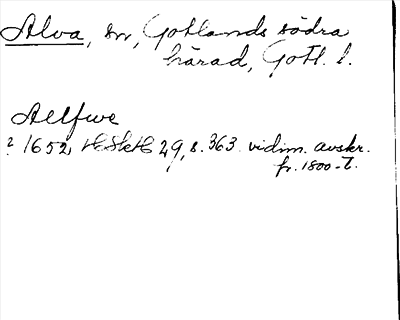 Alva, sn, Gotlands södra
härad, Gotl. l.
Allfwe
? 1652 29, s. 363 vidim. avskr.
fr. 1800-t.